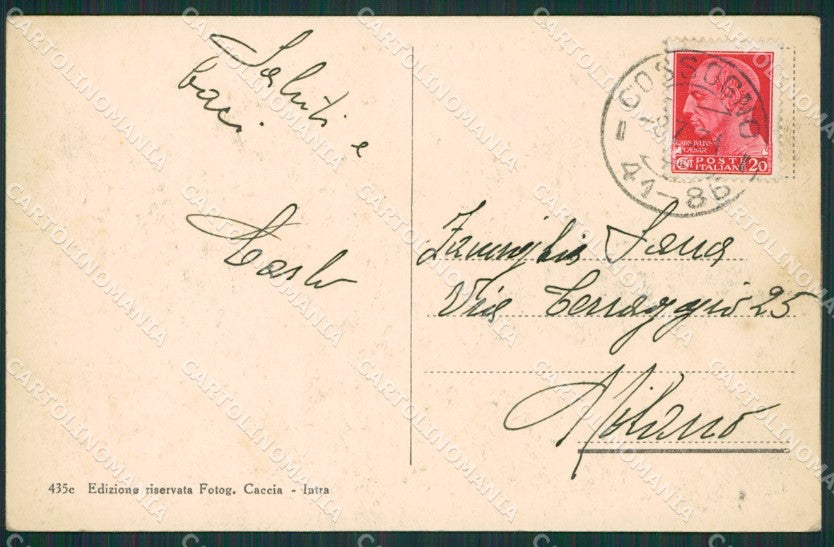 Saluti e
baci
Carlo
COSSOGNO
41-8B
CAIVS IVLIVS
CAESAR
POSTE
ITALIANE
20
Famiglia Sana
Via Terraggio 25
Milano
435c Edizione riservata Fotog. Caccia - Intra
CARTOLINOMANIA